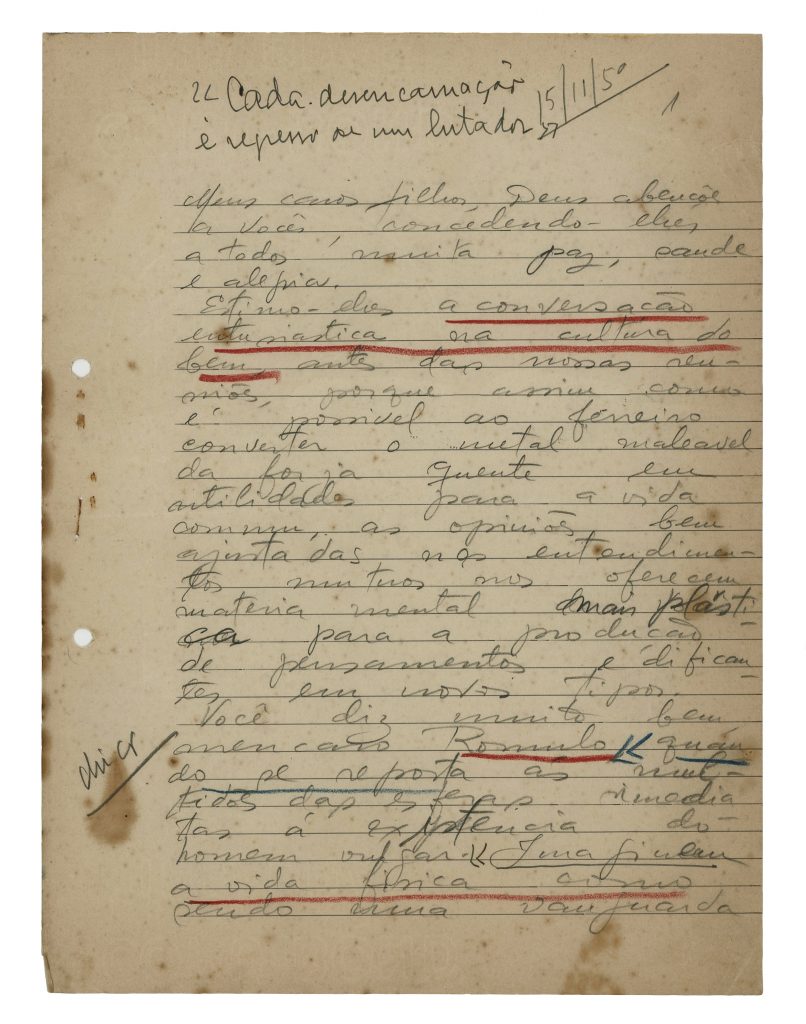 22 Cada desencarnação 15/11/50
é regresso de um lutador 1
Meus caros filhos, Deus abençôe
a vocês, concedendo-lhes
a todos muita paz, saude
e alegria.
Estimo-lhes a conversação
entusiastica na cultura do
bem, antes das nossas reu-
niões, porque assim como
é possivel ao ferreiro
converter o metal maleavel
da forja quente em
utilidades para a vida
commum, as opiniões bem
ajustadas nos entendimen-
tos mutuos nos oferecem
materia mental mais plásti
ca para a producão
de pensamentos edifican-
tes em novos tipos.
Você diz muito bem
meu caro Romulo << quan
do se reporta ás mul-
tidões das esferas imedia
tas á existencia do
homem vulgar. << Imaginem
a vida fisica como
sendo uma vanguarda